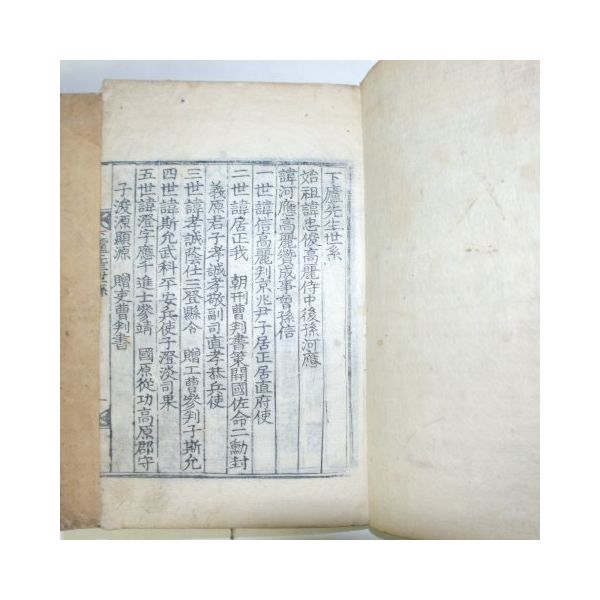 下廬先生世系
始祖諱忠俊高麗侍中後孫河應
諱河應高麗贊成事曾孫信
一世諱信高麗判京兆尹子居正居直府使
二世諱居正我 朝刑曹判書策開國佐命二勳封
義原君子孝誠孝敬副司直孝恭兵使
三世諱孝誠蔭仕三登縣令 贈工曹參判子斯允
四世諱斯允武科平安兵使子澄淡司果
五世諱澄字應千進士參靖 國原從功高原郡守
子浚源顯源 贈吏曹判書
下廬先生世系